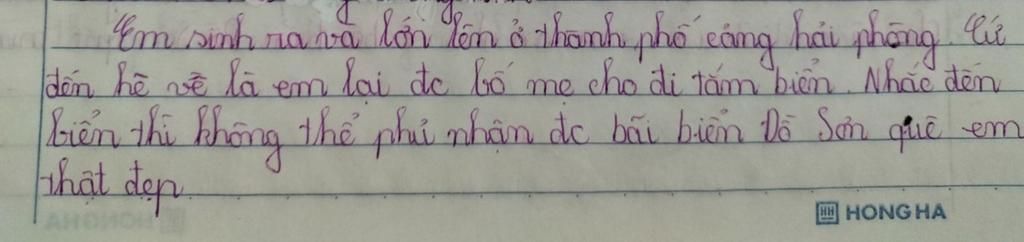 Em sinh ra và lớn lên ở thanh phố cảng hải phòng. Cứ
đến hè về là em lại đc bố mẹ cho đi tắm biển. Nhắc đến
biển thì không thể phủ nhận đc bãi biển Đồ Sơn quê em
thật đẹp.
HONG HA